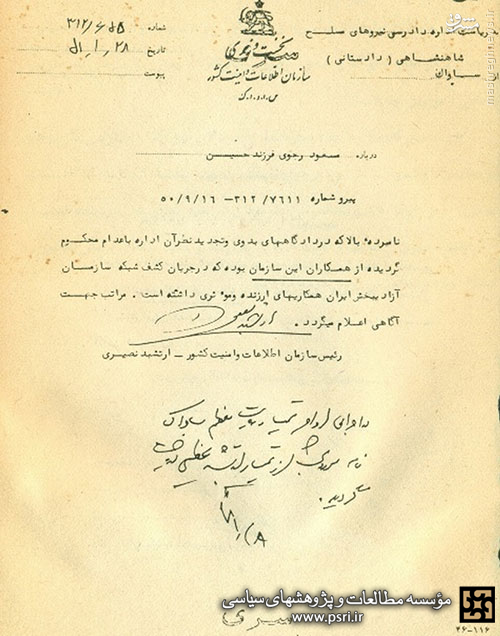 به ریاست اداره دادرسی نیروهای مسلح
شاهنشاهی (دادستانی)
از ساواک
نخست وزیری
سازمان اطلاعات و امنیت کشور
س.ا.و.ا.ک
شماره ۳۱۲/
تاریخ ۵۱/۱/۲۸
پیوست
درباره مسعود رجوی فرزند حسین
پیرو شماره ۳۱۲/۷۶۱۱ - ۵۰/۹/۱۶
نامبرده بالا که در دادگاههای بدوی و تجدید نظر آن اداره باعدام محکوم
گردیده از همکاران این سازمان بوده که در جریان کشف شبکه سازمان
آزادیبخش ایران همکاریهای ارزنده و موثری داشته است. مراتب جهت
آگاهی اعلام میگردد.
رئیس سازمان اطلاعات و امنیت کشور - ارتشبد نصیری
ساواک
گردید.
سری
مؤسسه مطالعات و پژوهشهای سیاسی
www.psri.ir
۴۶-۱۱۶
مشرق
mashreghnews.ir